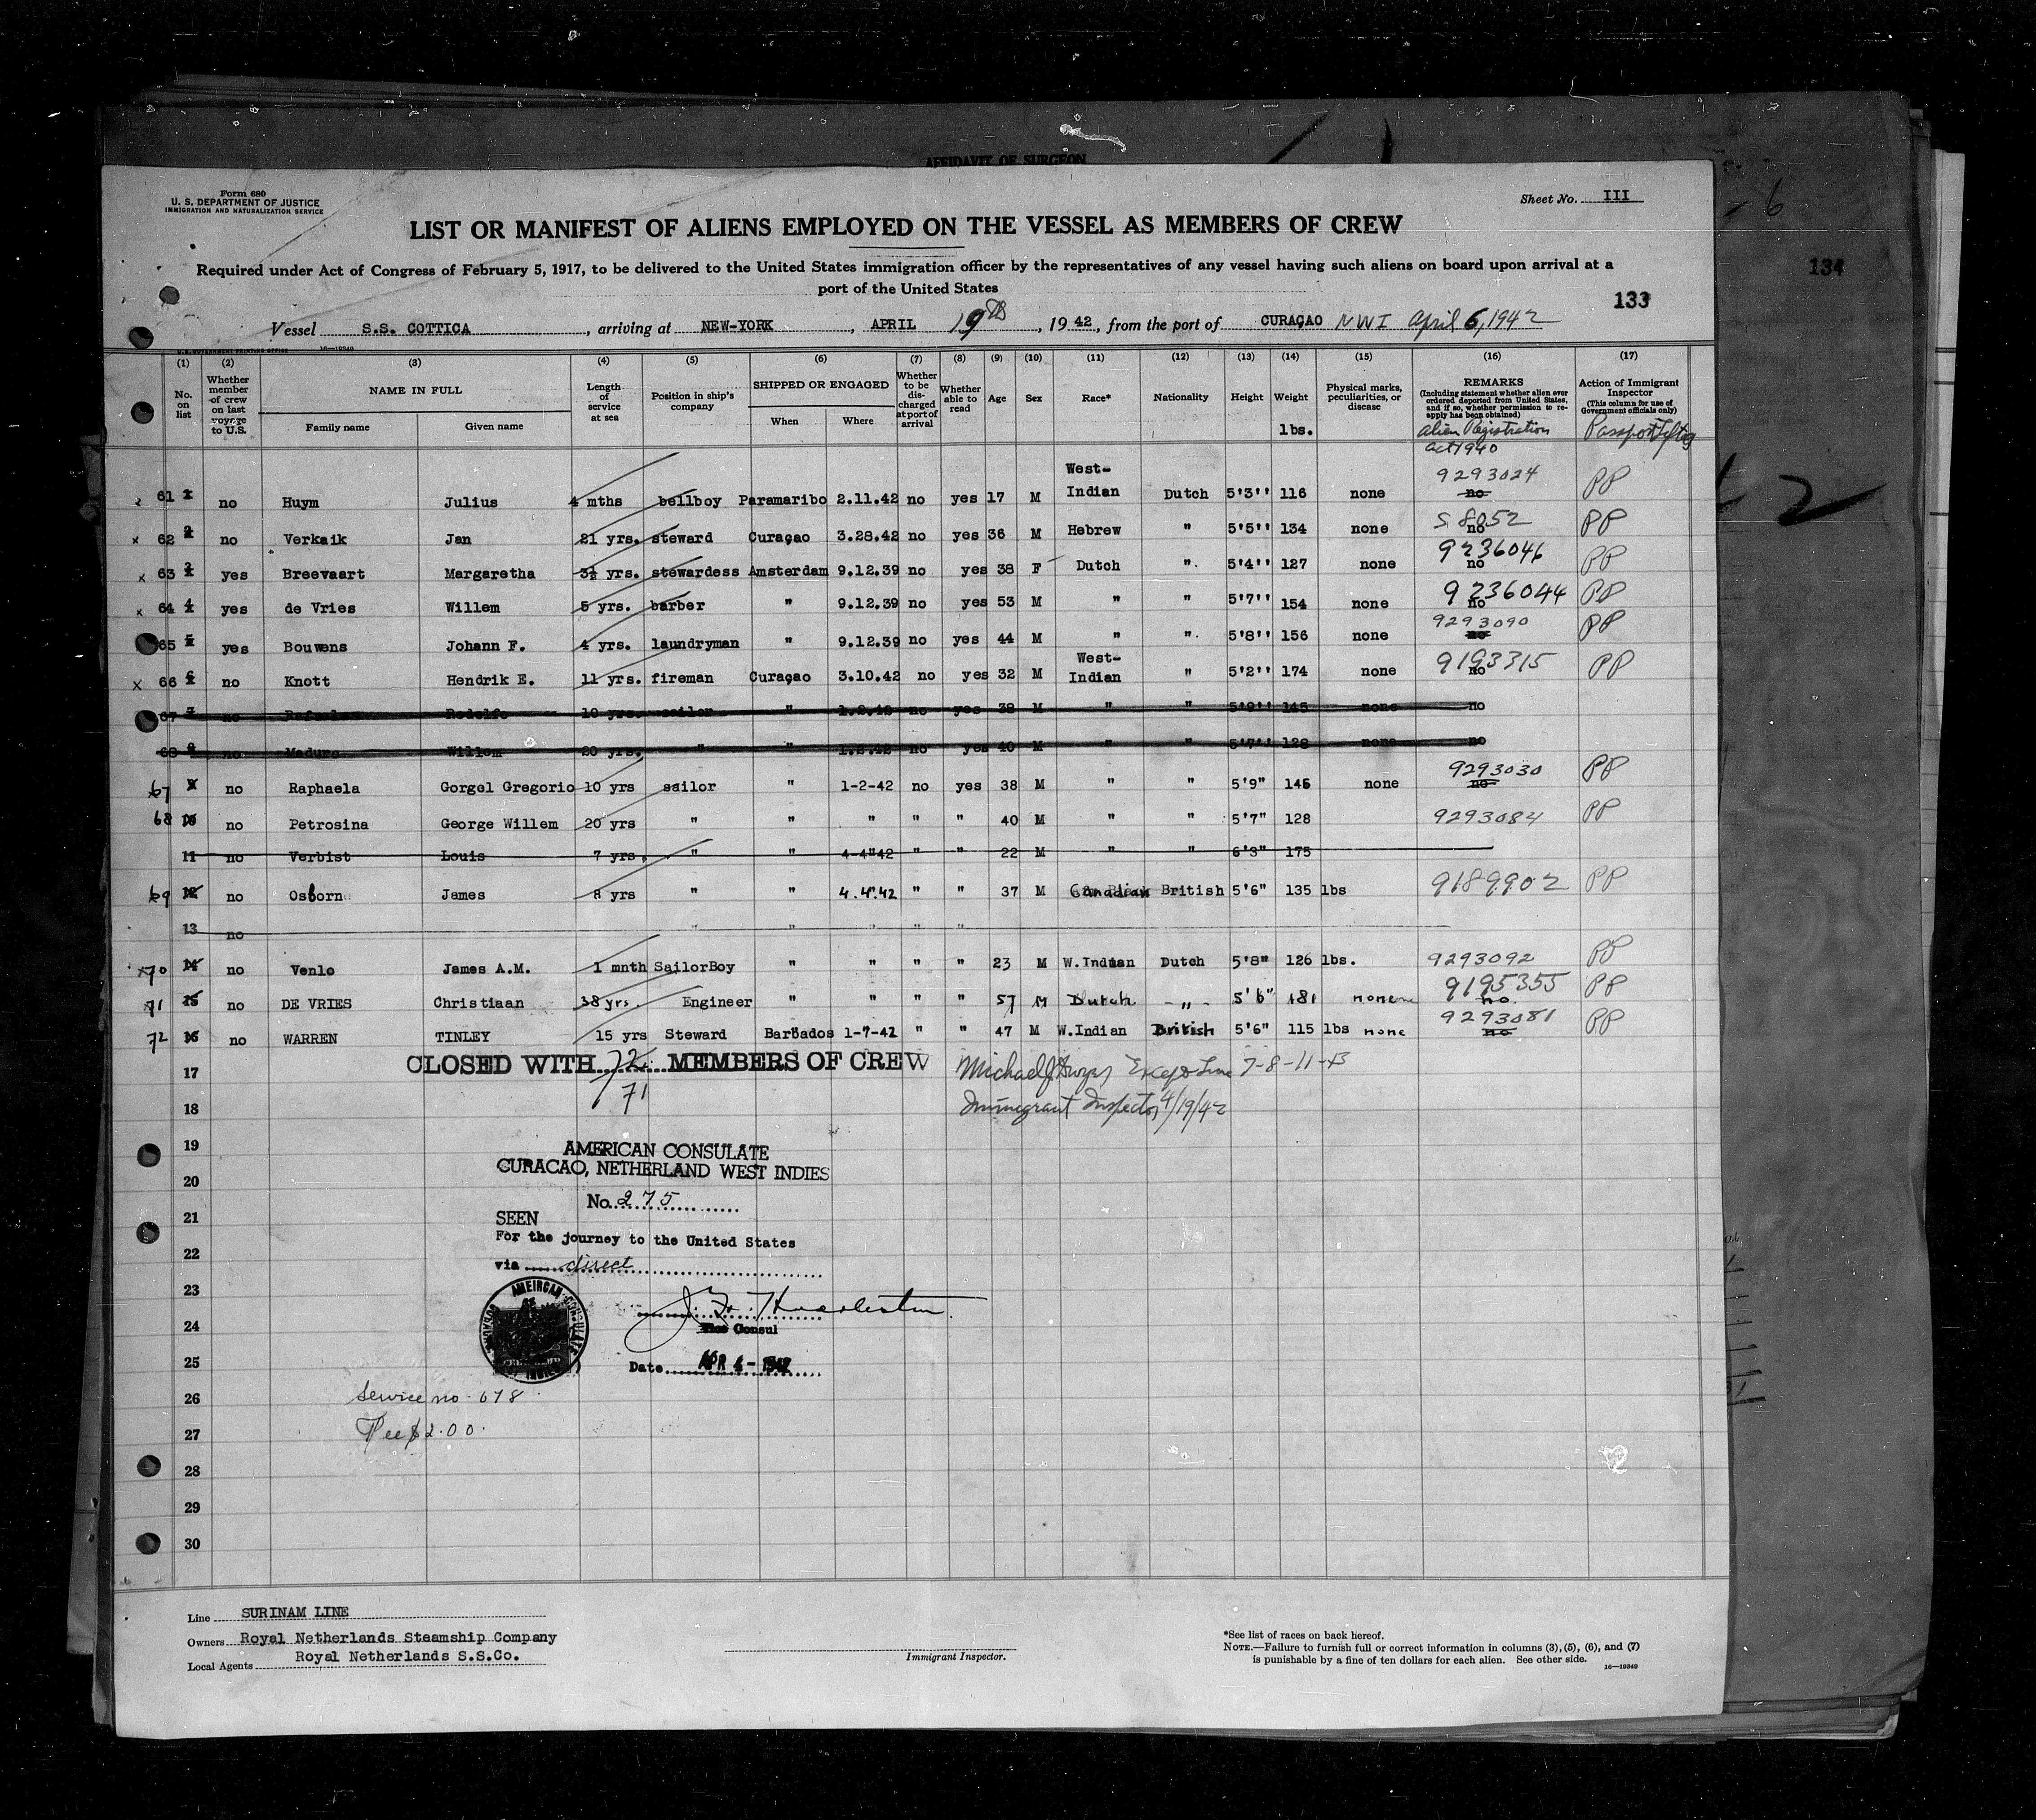 AFFIDAVIT OF SURGEON
Form 680
U. S. DEPARTMENT OF JUSTICE
IMMIGRATION AND NATURALIZATION SERVICE
Sheet No. III
LIST OR MANIFEST OF ALIENS EMPLOYED ON THE VESSEL AS MEMBERS OF CREW
Required under Act of Congress of February 5, 1917, to be delivered to the United States immigration officer by the representatives of any vessel having such aliens on board upon arrival at a
port of the United States
133
134
6
Vessel S.S. COTTICA, arriving at NEW-YORK, APRIL 19th, 1942, from the port of CURAÇAO NWI April 6, 1942
U.S. GOVERNMENT PRINTING OFFICE 16—19349
(1) (2) (3) (4) (5) (6) (7) (8) (9) (10) (11) (12) (13) (14) (15) (16) (17)
No. on list
Whether member of crew on last voyage to U.S.
NAME IN FULL
Family name Given name
Length of service at sea
Position in ship's company
SHIPPED OR ENGAGED
When Where
Whether to be discharged at port of arrival
Whether able to read
Age
Sex
Race*
Nationality
Height
Weight
lbs.
Physical marks, peculiarities, or disease
REMARKS
(Including statement whether alien ever ordered deported from United States, and if so, whether permission to re-apply has been obtained)
Alien Registration
Act 1940
Action of Immigrant Inspector
(This column for use of Government officials only)
61 1 no Huym Julius 4 mths bellboy Paramaribo 2.11.42 no yes 17 M West-Indian Dutch 5'3'' 116 none 9293024 no PP
x 62 2 no Verkaik Jan 21 yrs. steward Curaçao 3.28.42 no yes 36 M Hebrew " 5'5'' 134 none no PP
x 63 3 yes Breevaart Margaretha 3½ yrs. stewardess Amsterdam 9.12.39 no yes 38 F Dutch " 5'4'' 127 none 9236046 no PP
x 64 4 yes de Vries Willem 5 yrs. barber " 9.12.39 no yes 53 M " " 5'7'' 154 none 9236044 no PP
65 5 yes Bouwens Johann F. 4 yrs. laundryman " 9.12.39 no yes 44 M " " 5'8'' 156 none 9293090 no PP
x 66 6 no Knott Hendrik E. 11 yrs. fireman Curaçao 3.10.42 no yes 32 M West-Indian " 5'2'' 174 none 9193315 no PP
67 7 no Rodolfo 10 yrs. sailor " 1.2.42 no yes 38 M " " 5'9'' 145 none no
68 8 no Maduro Willem 20 yrs. " " 1.2.42 no yes 40 M " " 5'7'' 128 none no
67 no Raphaela Gorgel Gregorio 10 yrs sailor " 1-2-42 no yes 38 M " " 5'9" 145 none 9293030 no PP
68 10 no Petrosina George Willem 20 yrs " " " " " 40 M " " 5'7" 128 9293084 PP
11 no Verbist Louis 7 yrs. " " 4-4"42 " " 22 M " " 6'3" 175
69 12 no Osborn James 8 yrs " " 4.4.42 " " 37 M Canadian British 5'6" 135 lbs 9189902 PP
13 no " " " "
70 14 no Venlo James A.M. 1 mnth SailorBoy " " " " 23 M W.Indian Dutch 5'8" 126 lbs. 9293092 PP
71 15 no DE VRIES Christiaan 38 yrs. Engineer " " " " 57 M Dutch -"- 5'6" 181 none 9195355 no. PP
72 16 no WARREN TINLEY 15 yrs Steward Barbados 1-7-42 " " 47 M W.Indian British 5'6" 115 lbs none 9293081 no PP
CLOSED WITH 72 MEMBERS OF CREW
71
Except Line 7-8-11-13
Immigrant Inspector 4/19/42
17
18
19
20
21
22
23
24
25
26
27
28
29
30
AMERICAN CONSULATE
CURACAO, NETHERLAND WEST INDIES
No. 275
SEEN
For the journey to the United States
via direct
Vice Consul
Date APR 6 - 1942
Service no. 678
Fee $2.00.
Line SURINAM LINE
Owners Royal Netherlands Steamship Company
Local Agents Royal Netherlands S.S.Co.
Immigrant Inspector.
*See list of races on back hereof.
NOTE.—Failure to furnish full or correct information in columns (3), (5), (6), and (7)
is punishable by a fine of ten dollars for each alien. See other side.
16—19349